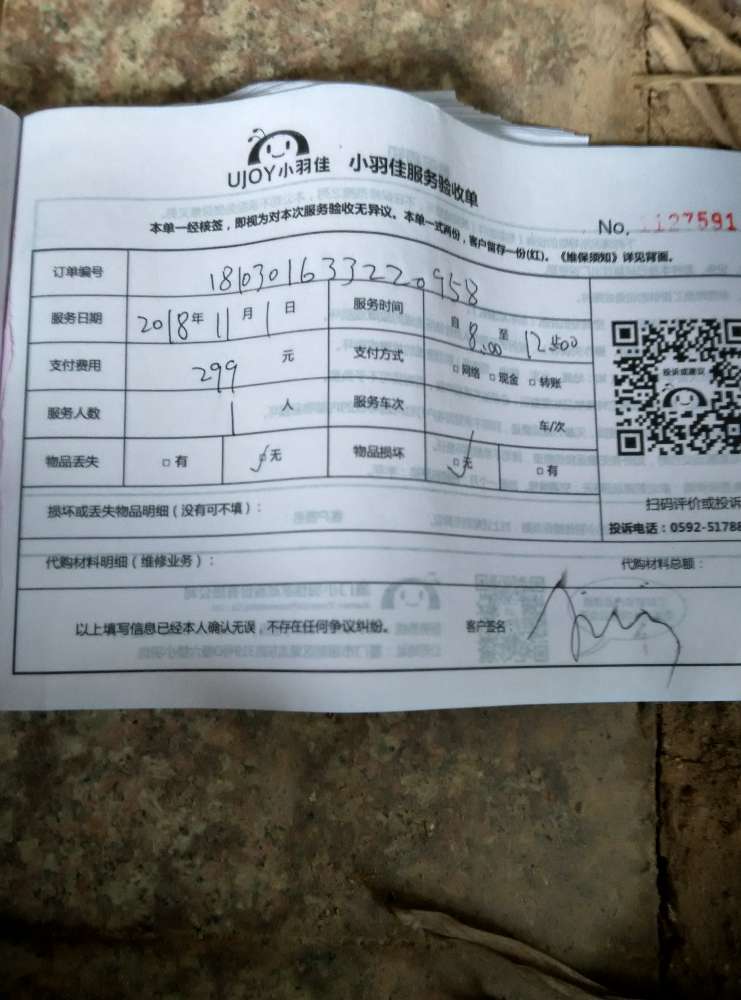 UJOY小羽佳 小羽佳服务验收单
本单一经核签，即视为对本次服务验收无异议。本单一式两份，客户留存一份(红)。《维保须知》详见背面。
No. 1127591
订单编号 180301633220958
服务日期 2018年 11月 1日 服务时间 自 8:00 至 12:00
支付费用 299 元 支付方式 □网络 □现金 □转账
服务人数 1 人 服务车次 车/次
物品丢失 □有 □无 物品损坏 □无 □有
投诉或建议
损坏或丢失物品明细（没有可不填）：
扫码评价或投诉
投诉电话：0592-51788
代购材料明细（维修业务）： 代购材料总额：
以上填写信息已经本人确认无误，不存在任何争议纠纷。 客户签名：